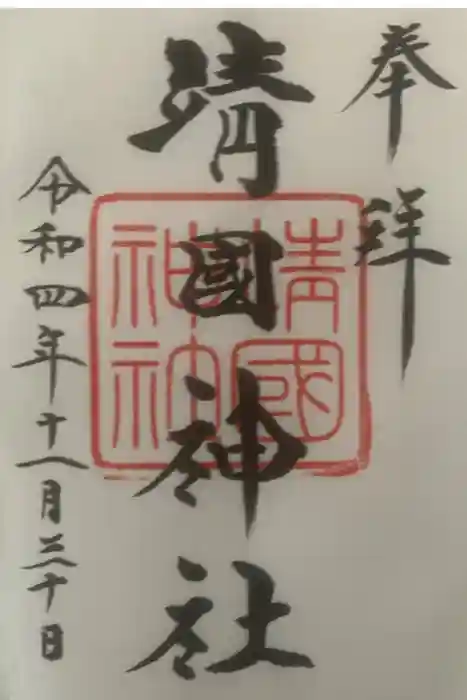 奉拝
靖國神社
靖國神社
令和四年十一月三十日